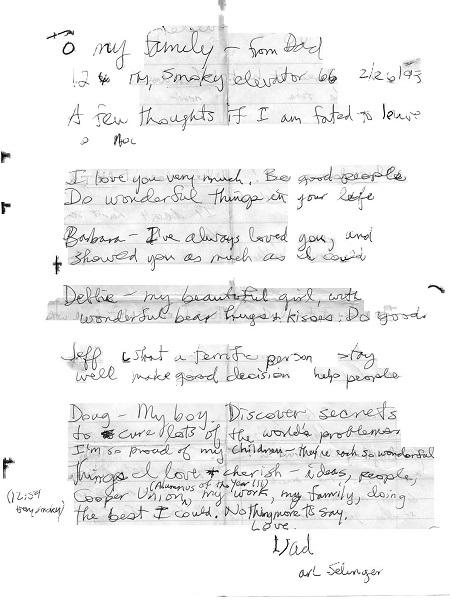 To my family - from Dad
1.2 rm, smoky elevator 66 2/26/93
A few thoughts if I am fated to leave
I love you very much. Be good people
Do wonderful things in your life
Barbara - I've always loved you, and
showed you as much as I could
Debbie - my beautiful girl, with
wonderful bear hugs & kisses. Do good
Jeff what a terrific person stay
well make good decision help people
Doug - My boy. Discover secrets
to cure lots of the world's problems
I'm so proud of my children - they're each so wonderful
Things I love & cherish - ideas, people,
(Alumnus of the Year (!!))
Cooper Union, my work, my family, doing
(12:59 very smoky)
the best I could. Nothing more to say.
Love.
Dad
art Selinger